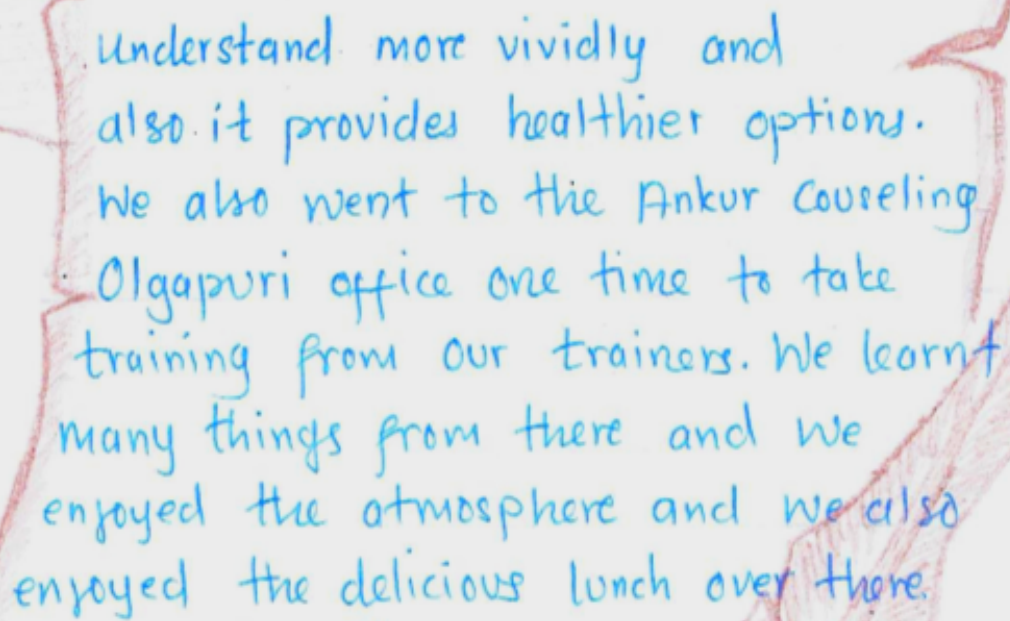 understand more vividly and
also it provides healthier options.
We also went to the Ankur Couseling
Olgapuri office one time to take
training from our trainers. We learnt
many things from there and we
enjoyed the atmosphere and we also
enjoyed the delicious lunch over there.